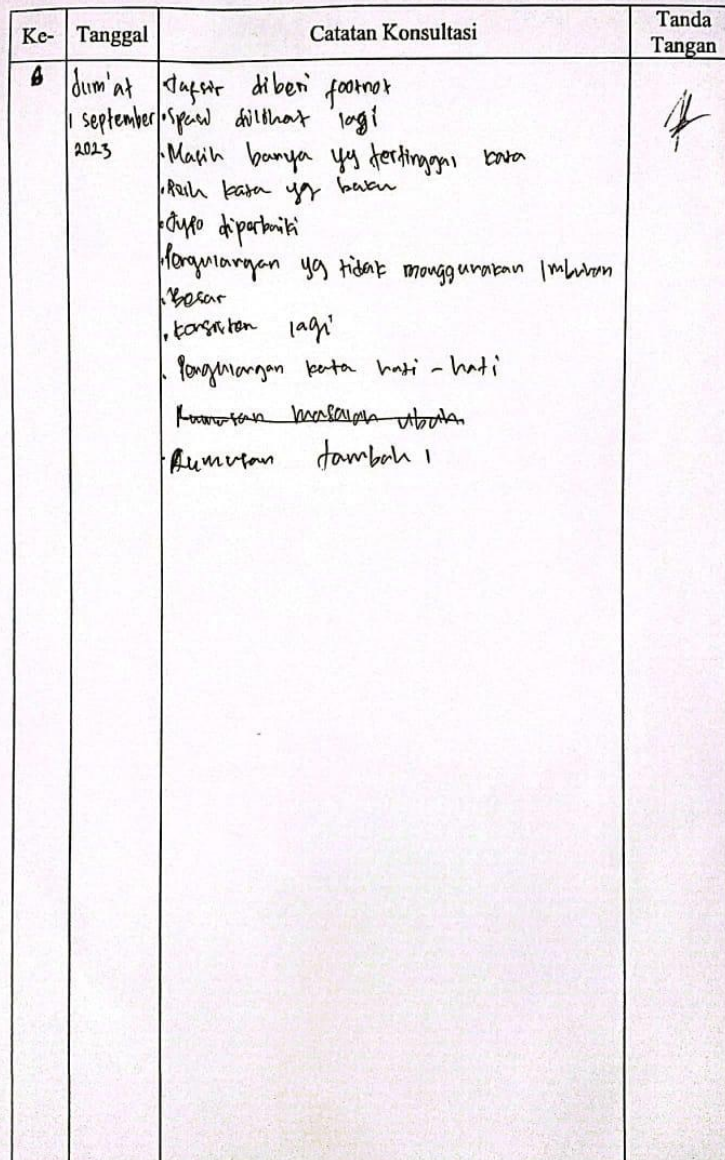 Ke- Tanggal Catatan Konsultasi Tanda Tangan
6 Jum'at 1 september 2023
• Tafsir diberi footnot
• Spasi dilihat lagi
• Masih banya yg tertinggal kata
• Pilih kata yg baku
• Typo diperbaiki
• Pengulangan yg tidak menggunakan Imbuhan
• Besar
• konsisten lagi
• Pengulangan kata hati - hati
Rumusan masalah ubah
• Rumusan tambah 1